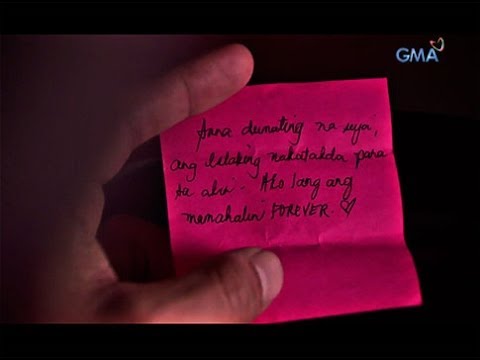 GMA
Sana dumating na siya,
ang lalaking nakatakda para
sa akin. Ako lang ang
mamahalin FOREVER.